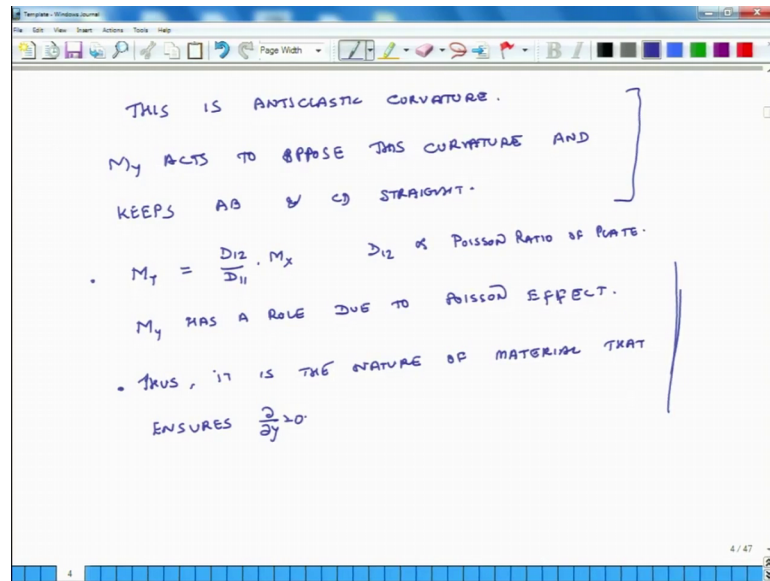 Template - Windows Journal
File Edit View Insert Actions Tools Help
Page Width B I
THIS IS ANTICLASTIC CURVATURE.
My ACTS TO OPPOSE THIS CURVATURE AND
KEEPS AB & CD STRAIGHT.
• My = D12/D11 . Mx D12 α POISSON RATIO OF PLATE.
My HAS A ROLE DUE TO POISSON EFFECT.
• THUS, IT IS THE NATURE OF MATERIAL THAT
ENSURES ∂/∂y=0.
4 / 47
4